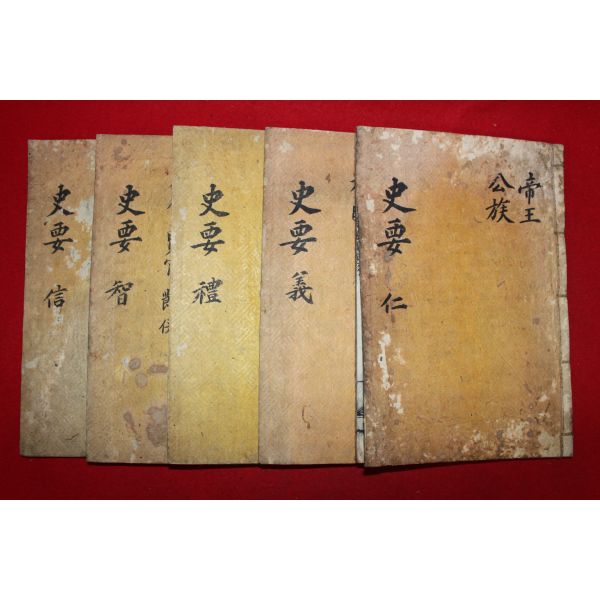 帝王
公族
史要 仁
史要 義
史要 禮
史要 智
史要 信